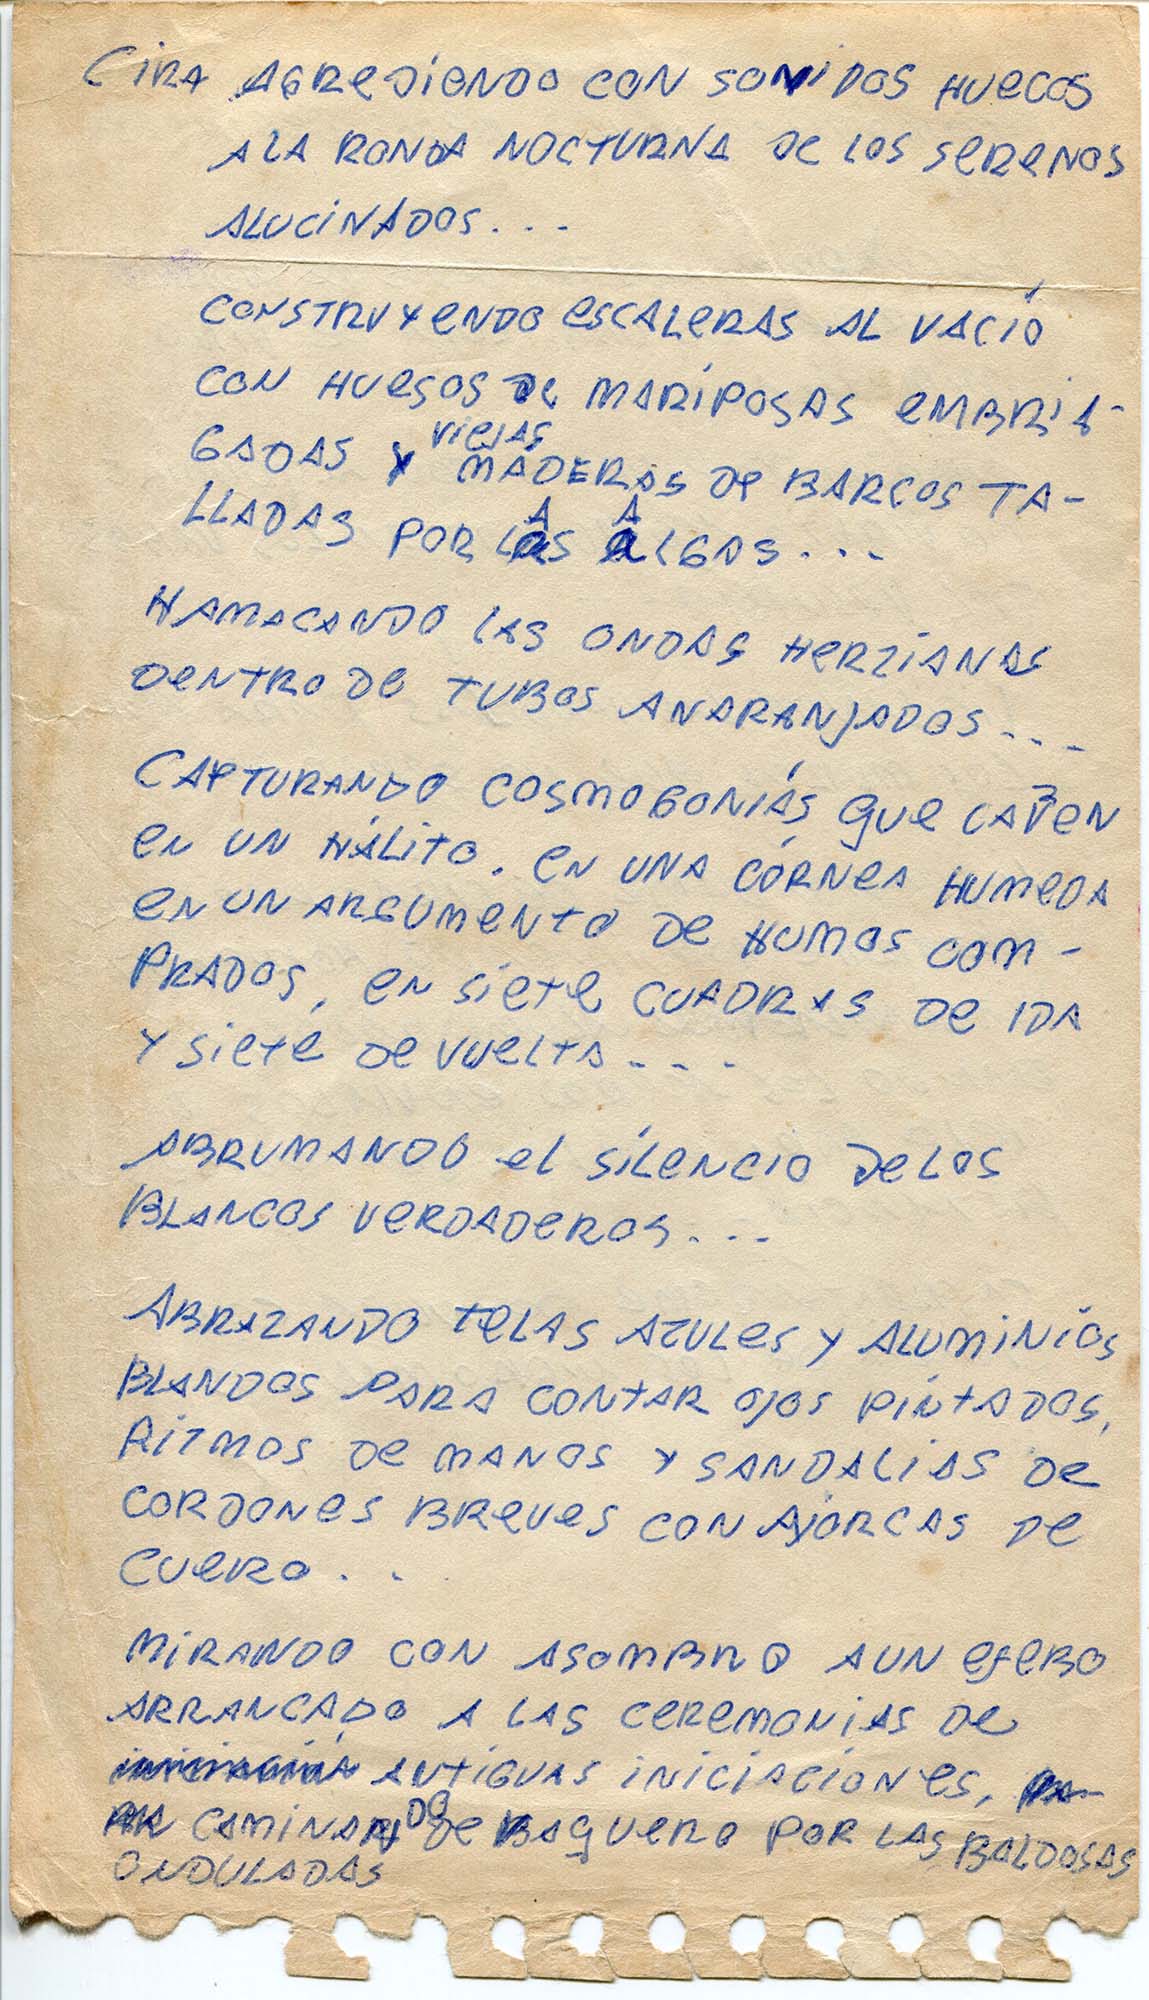 CIRA AGREDIENDO CON SONIDOS HUECOS
A LA RONDA NOCTURNA DE LOS SERENOS
ALUCINADOS...
CONSTRUYENDO ESCALERAS AL VACIÓ
CON HUESOS DE MARIPOSAS EMBRIA-
GADAS Y VIEJAS MADERAS DE BARCOS TA-
LLADAS POR LAS ALGAS...
HAMACANDO LAS ONDAS HERZIANAS
DENTRO DE TUBOS ANARANJADOS...
CAPTURANDO COSMOGONIÁS QUE CABEN
EN UN HÁLITO. EN UNA CÓRNEA HUMEDA
EN UN ARGUMENTO DE HUMOS COM-
PRADOS, EN SIETE CUADRAS DE IDA
Y SIETE DE VUELTA....
ABRUMANDO EL SILENCIO DE LOS
BLANCOS VERDADEROS...
ABRAZANDO TELAS AZULES Y ALUMINIOS
BLANDOS PARA CONTAR OJOS PINTADOS,
RITMOS DE MANOS Y SANDALIAS DE
CORDONES BREVES CON AJORCAS DE
CUERO...
MIRANDO CON ASOMBRO A UN EFEBO
ARRANCADO A LAS CEREMONIAS DE
ANTIGUAS INICIACIONES,
CAMINANDO DE BAQUERO POR LAS BALDOSAS
ONDULADAS